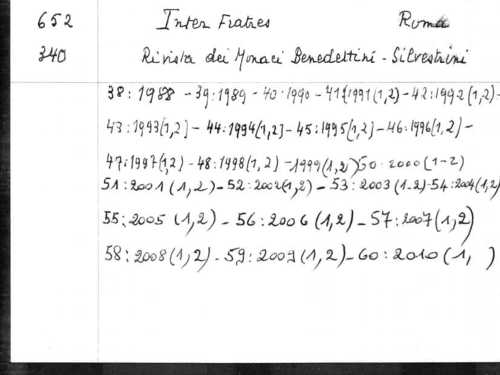 652 Inter Fratres Roma
340 Rivista dei Monaci Benedettini - Silvestrini
38:1988 - 39:1989 - 40:1990 - 41:1991(1,2) - 42:1992(1,2) -
43:1993(1,2) - 44:1994(1,2) - 45:1995(1,2) - 46:1996(1,2) -
47:1997(1,2) - 48:1998(1,2) - 1999(1,2) 50:2000(1-2)
51:2001(1,2) - 52:2002(1,2) - 53:2003(1-2) - 54:2004(1,2)
55:2005(1,2) - 56:2006(1,2) - 57:2007(1,2)
58:2008(1,2) - 59:2009(1,2) - 60:2010(1, )